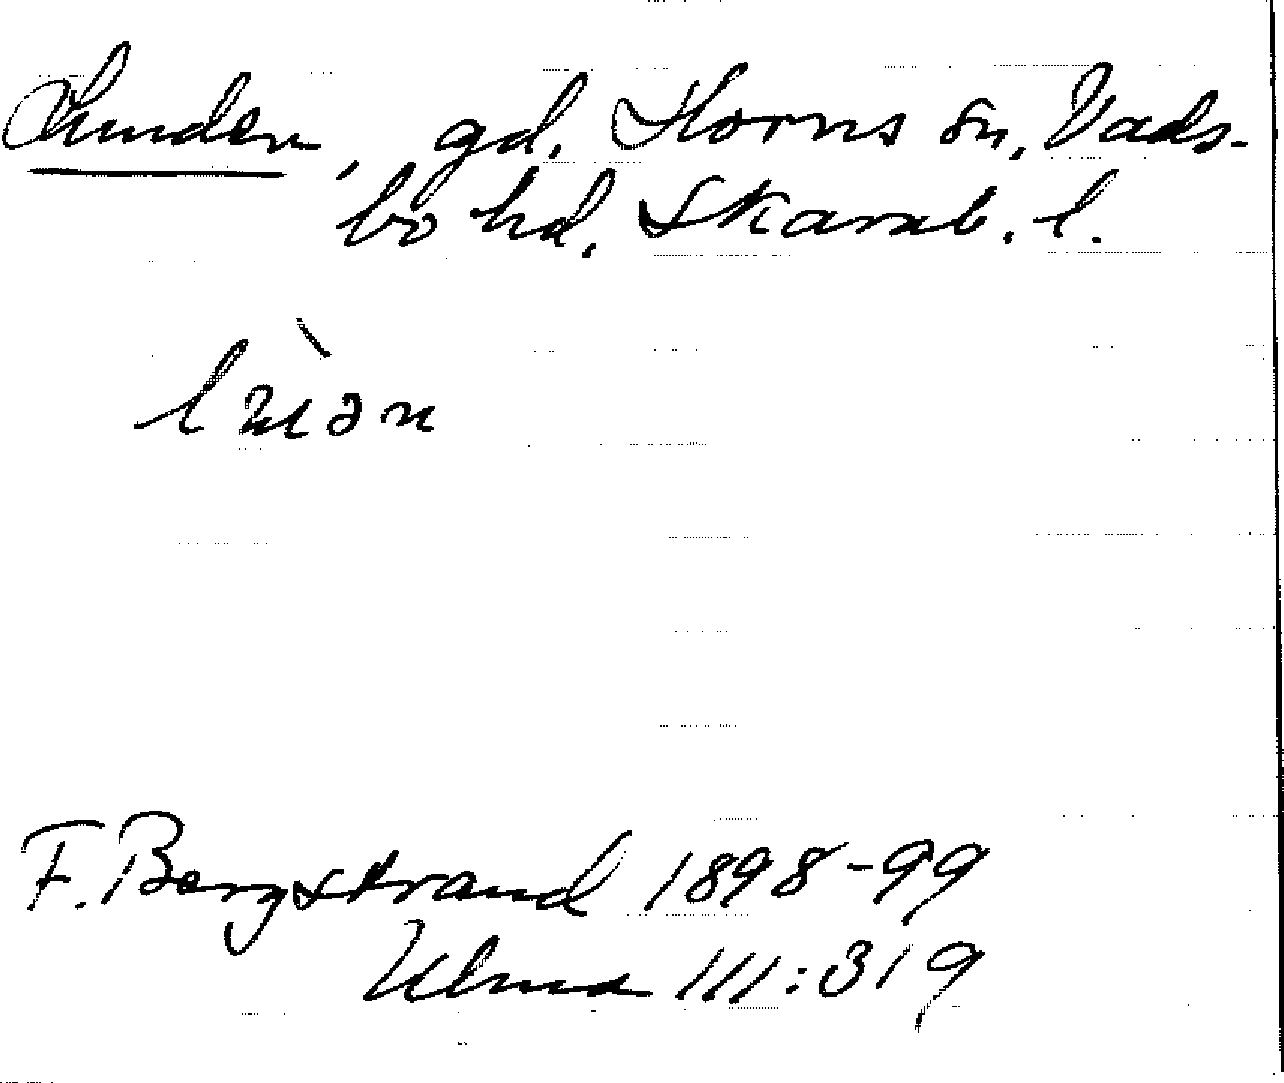 Lunden, gd, Horns sn, Vads-
bo hd, Skarab. l.
F. Bergstrand 1898-99
Ulma 111:319